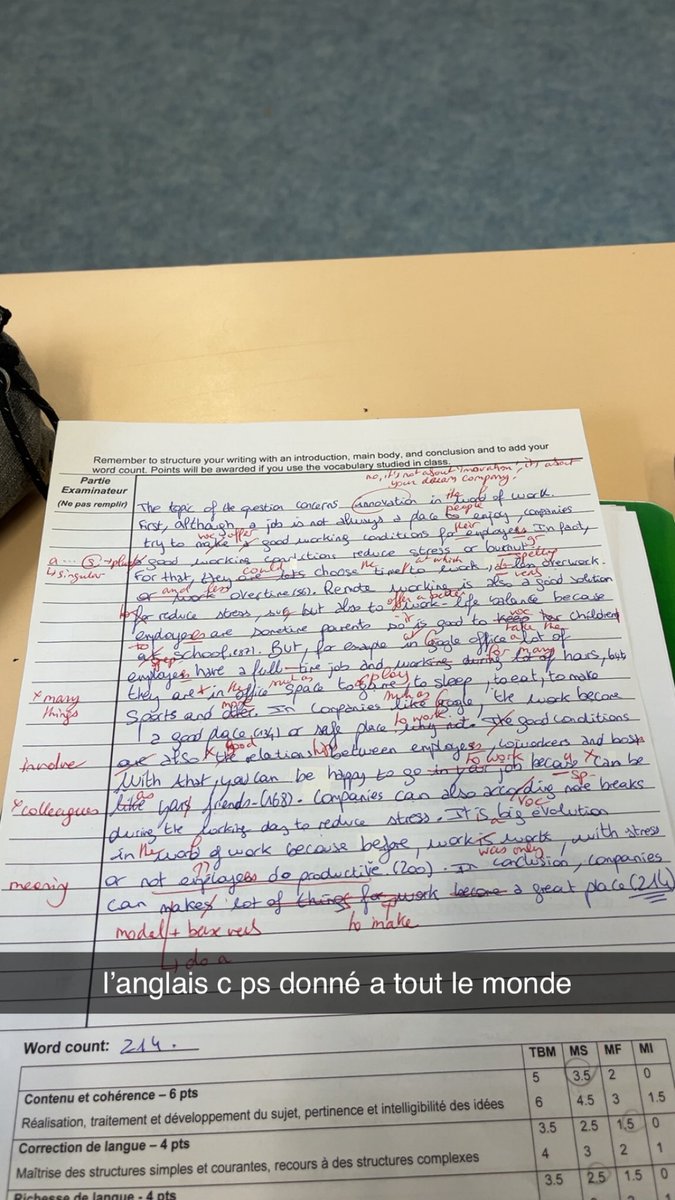 Remember to structure your writing with an introduction, main body, and conclusion and to add your
word count. Points will be awarded if you use the vocabulary studied in class.
no, it's not about "innovation", it's about
your dream company.
Partie
Examinateur
(Ne pas remplir)
The topic of the question concerns innovation in the world of work.
people
First, although a job is not always a place to enjoy, companies
we offer their
try to make good working conditions for employees. In fact,
a ... (s) → plural
↳ singular
good working conditions reduce stress or burnout.
could the at which spelling
For that, they are lets choose time to work, do less overwork
and less verb
or work overtime (56). Remote working is also a good solution
to offer a better
for reduce stress, but also to work-life balance because
voc
employees are sometime parents so it is good to keep her children
to at take the
at school. (87). But, for example in Google office a lot of
for many
employees have a full-time job and working during lot of hours, but
in the such as play
they are in office space to game, to sleep, to eat, to make
× many
things
more such as
sports and other. In companies like Google, the work become
to work
a good place (134) or safe place, why not. The good conditions
good
involve
are also the relationship between employees, coworkers and boss
to work
With that, you can be happy to go in your job because × can be
× colleagues
as sp.
like yours friends. (168). Companies can also according more breaks
voc
during the working day to reduce stress. It is big evolution
the
in world of work because before, work is works, with stress
meaning
?? was only
or not employees do productive (200). In conclusion, companies
can makes lot of things for work become a great place (214)
modal + base verb
to make
↳ do a
l'anglais c ps donné a tout le monde
Word count: 214.
TBM MS MF MI
5 3.5 2 0
Contenu et cohérence – 6 pts
6 4.5 3 1.5
Réalisation, traitement et développement du sujet, pertinence et intelligibilité des idées
3.5 2.5 1.5 0
Correction de langue – 4 pts
4 3 2 1
Maîtrise des structures simples et courantes, recours à des structures complexes
3.5 2.5 1.5 0
Richesse de langue - 4 pts